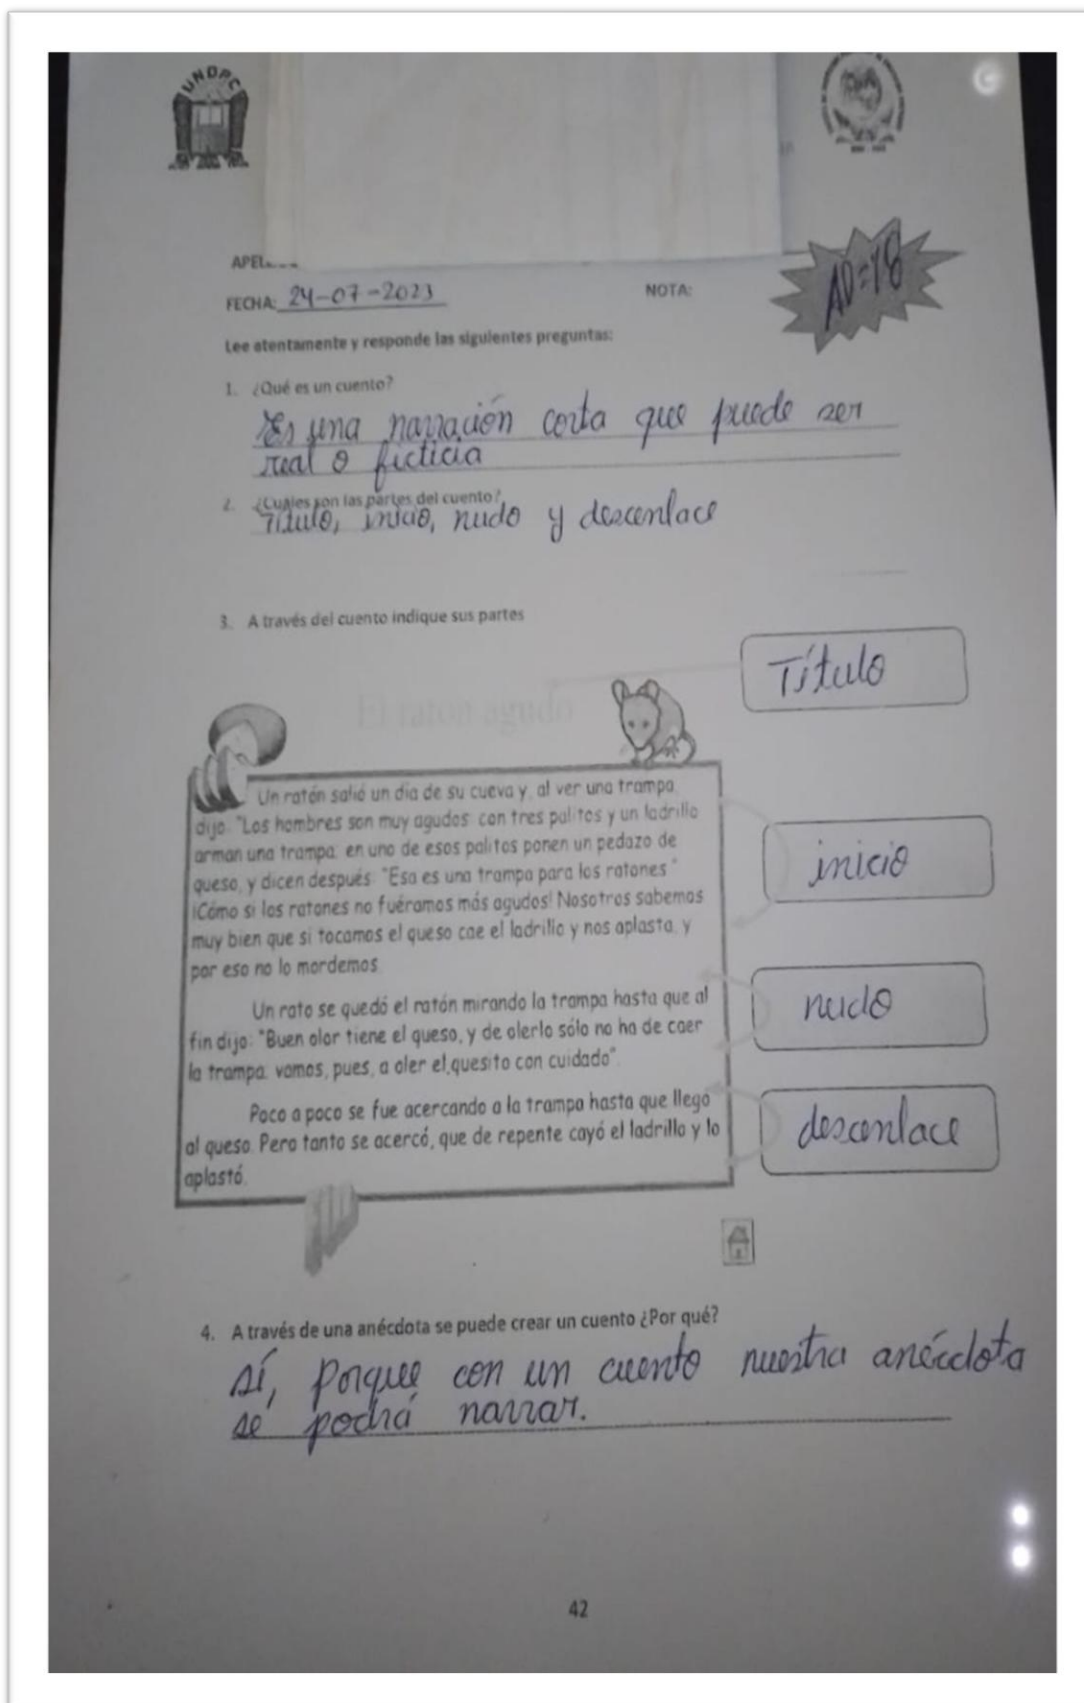 UNDPC
APEL
FECHA: 24-07-2023
NOTA:
AD=18
Lee atentamente y responde las siguientes preguntas:
1. ¿Qué es un cuento?
Es una narración corta que puede ser
real o ficticia
2. ¿Cuáles son las partes del cuento?
Título, inicio, nudo y descenlace
3. A través del cuento indique sus partes
Título
El raton agudo
Un ratón salió un día de su cueva y, al ver una trampa,
dijo: "Los hombres son muy agudos: con tres palitos y un ladrillo
arman una trampa; en uno de esos palitos ponen un pedazo de
queso, y dicen después: "Esa es una trampa para los ratones."
¡Cómo si los ratones no fuéramos más agudos! Nosotros sabemos
muy bien que si tocamos el queso cae el ladrillo y nos aplasta, y
por eso no lo mordemos.
inicio
Un rato se quedó el ratón mirando la trampa hasta que al
fin dijo: "Buen olor tiene el queso, y de olerlo sólo no ha de caer
la trampa: vamos, pues, a oler el quesito con cuidado".
nudo
Poco a poco se fue acercando a la trampa hasta que llegó
al queso. Pero tanto se acercó, que de repente cayó el ladrillo y lo
aplastó.
descenlace
4. A través de una anécdota se puede crear un cuento ¿Por qué?
sí, porque con un cuento nuestra anécdota
se podrá narrar.
42